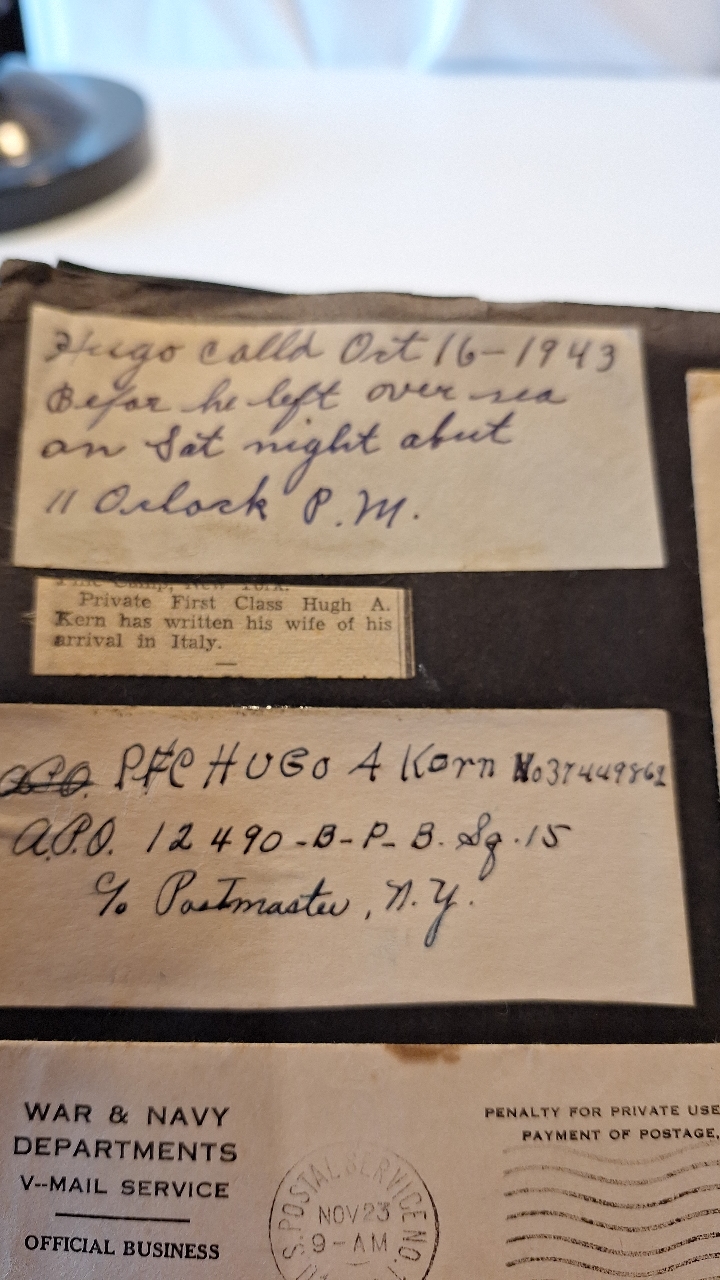 Hugo calld Oct 16-1943
Befor he left over sea
on Sat night abut
11 Oclock P.M.
Pine Camp, New York.
Private First Class Hugh A.
Kern has written his wife of his
arrival in Italy.
A.P.O. PFC HUGO A Korn No 37449862
A.P.O. 12490-B-P-B. Sq. 15
c/o Postmaster, N.Y.
WAR & NAVY
DEPARTMENTS
V--MAIL SERVICE
OFFICIAL BUSINESS
U.S. POSTAL SERVICE NO.
NOV 23
9-AM
PENALTY FOR PRIVATE USE
PAYMENT OF POSTAGE,